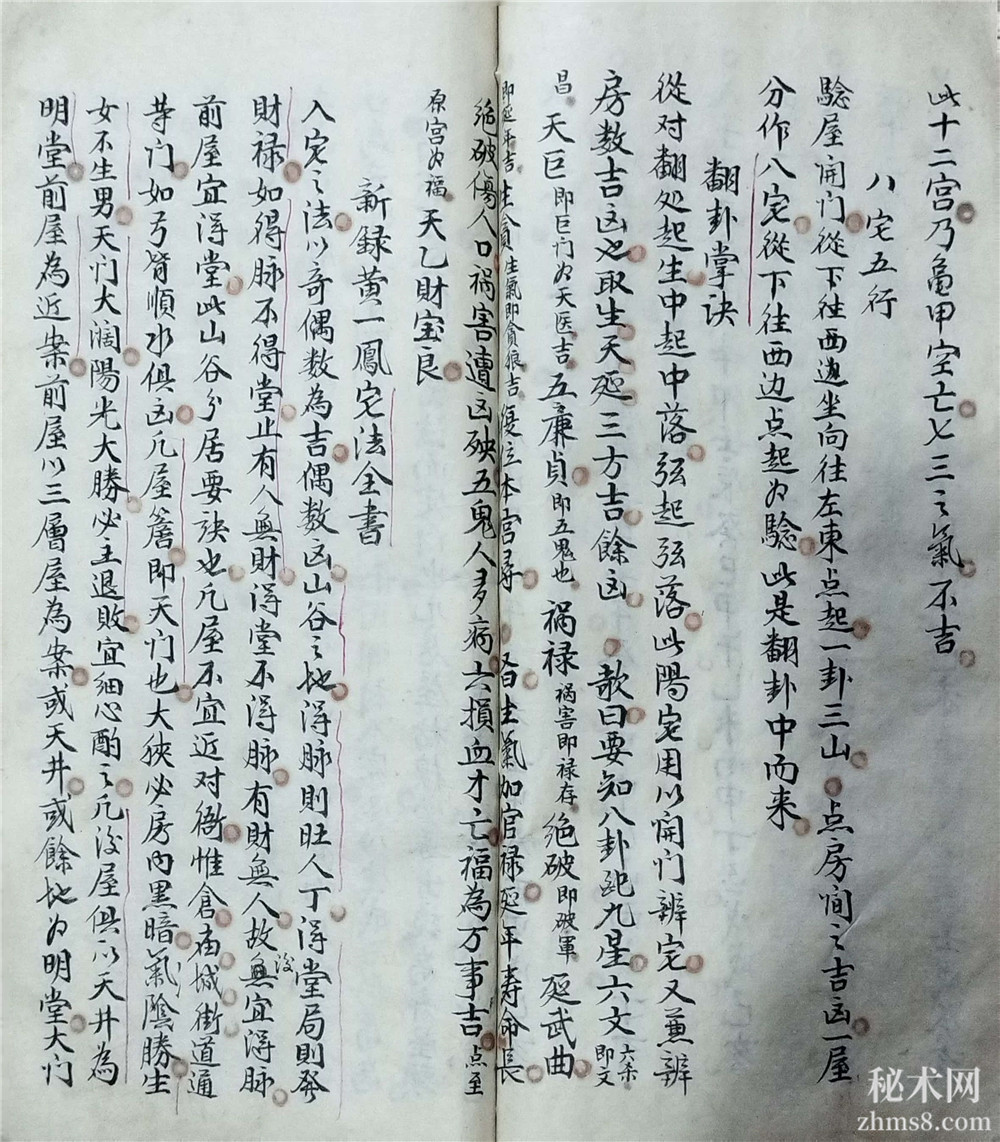 此十二宫乃亀甲空亡七三之氣不吉
八宅五行
驗屋開门從下往西邊坐向往左東点起一卦三山点房间之吉凶一屋
分作八宅從下往西边点起为驗此是翻卦中而来
翻卦掌诀
從对翻处起生中起中落弦起弦落此陽宅用以開门辨宅又兼辨
房数吉凶也取生天延三方吉餘凶 歌曰要知八卦配九星六文六杀即文
昌天巨即巨门为天医吉五廉贞即五鬼也祸禄祸害即禄存绝破即破軍延武曲
即延年吉生貪生氣即貪狼吉復位本宫尋 生氣加官禄延年寿命長
绝破傷人口祸害遭凶殃五鬼人多病六損血才亡福為万事吉点至
原宫为福天乙財宝良
新録黄一鳳宅法全書
入宅之法以奇偶数為吉偶数凶山谷之地得脉則旺人丁得堂局則發
財禄如得脉不得堂止有人無財得堂不得脉有財無人故無宜得脉
後前屋宜得堂此山谷分居要訣也凡屋不宜近对衙惟倉庙城街道通
等门如弓背順水俱凶凡屋簷即天门也大狹必房内黑暗氣陰勝生
女不生男天门大濶陽光大勝必主退敗宜細心酌之凡後屋俱以天井為
明堂前屋為近案前屋以三層屋為案或天井或餘地为明堂大门
秘术网
zhms8.com